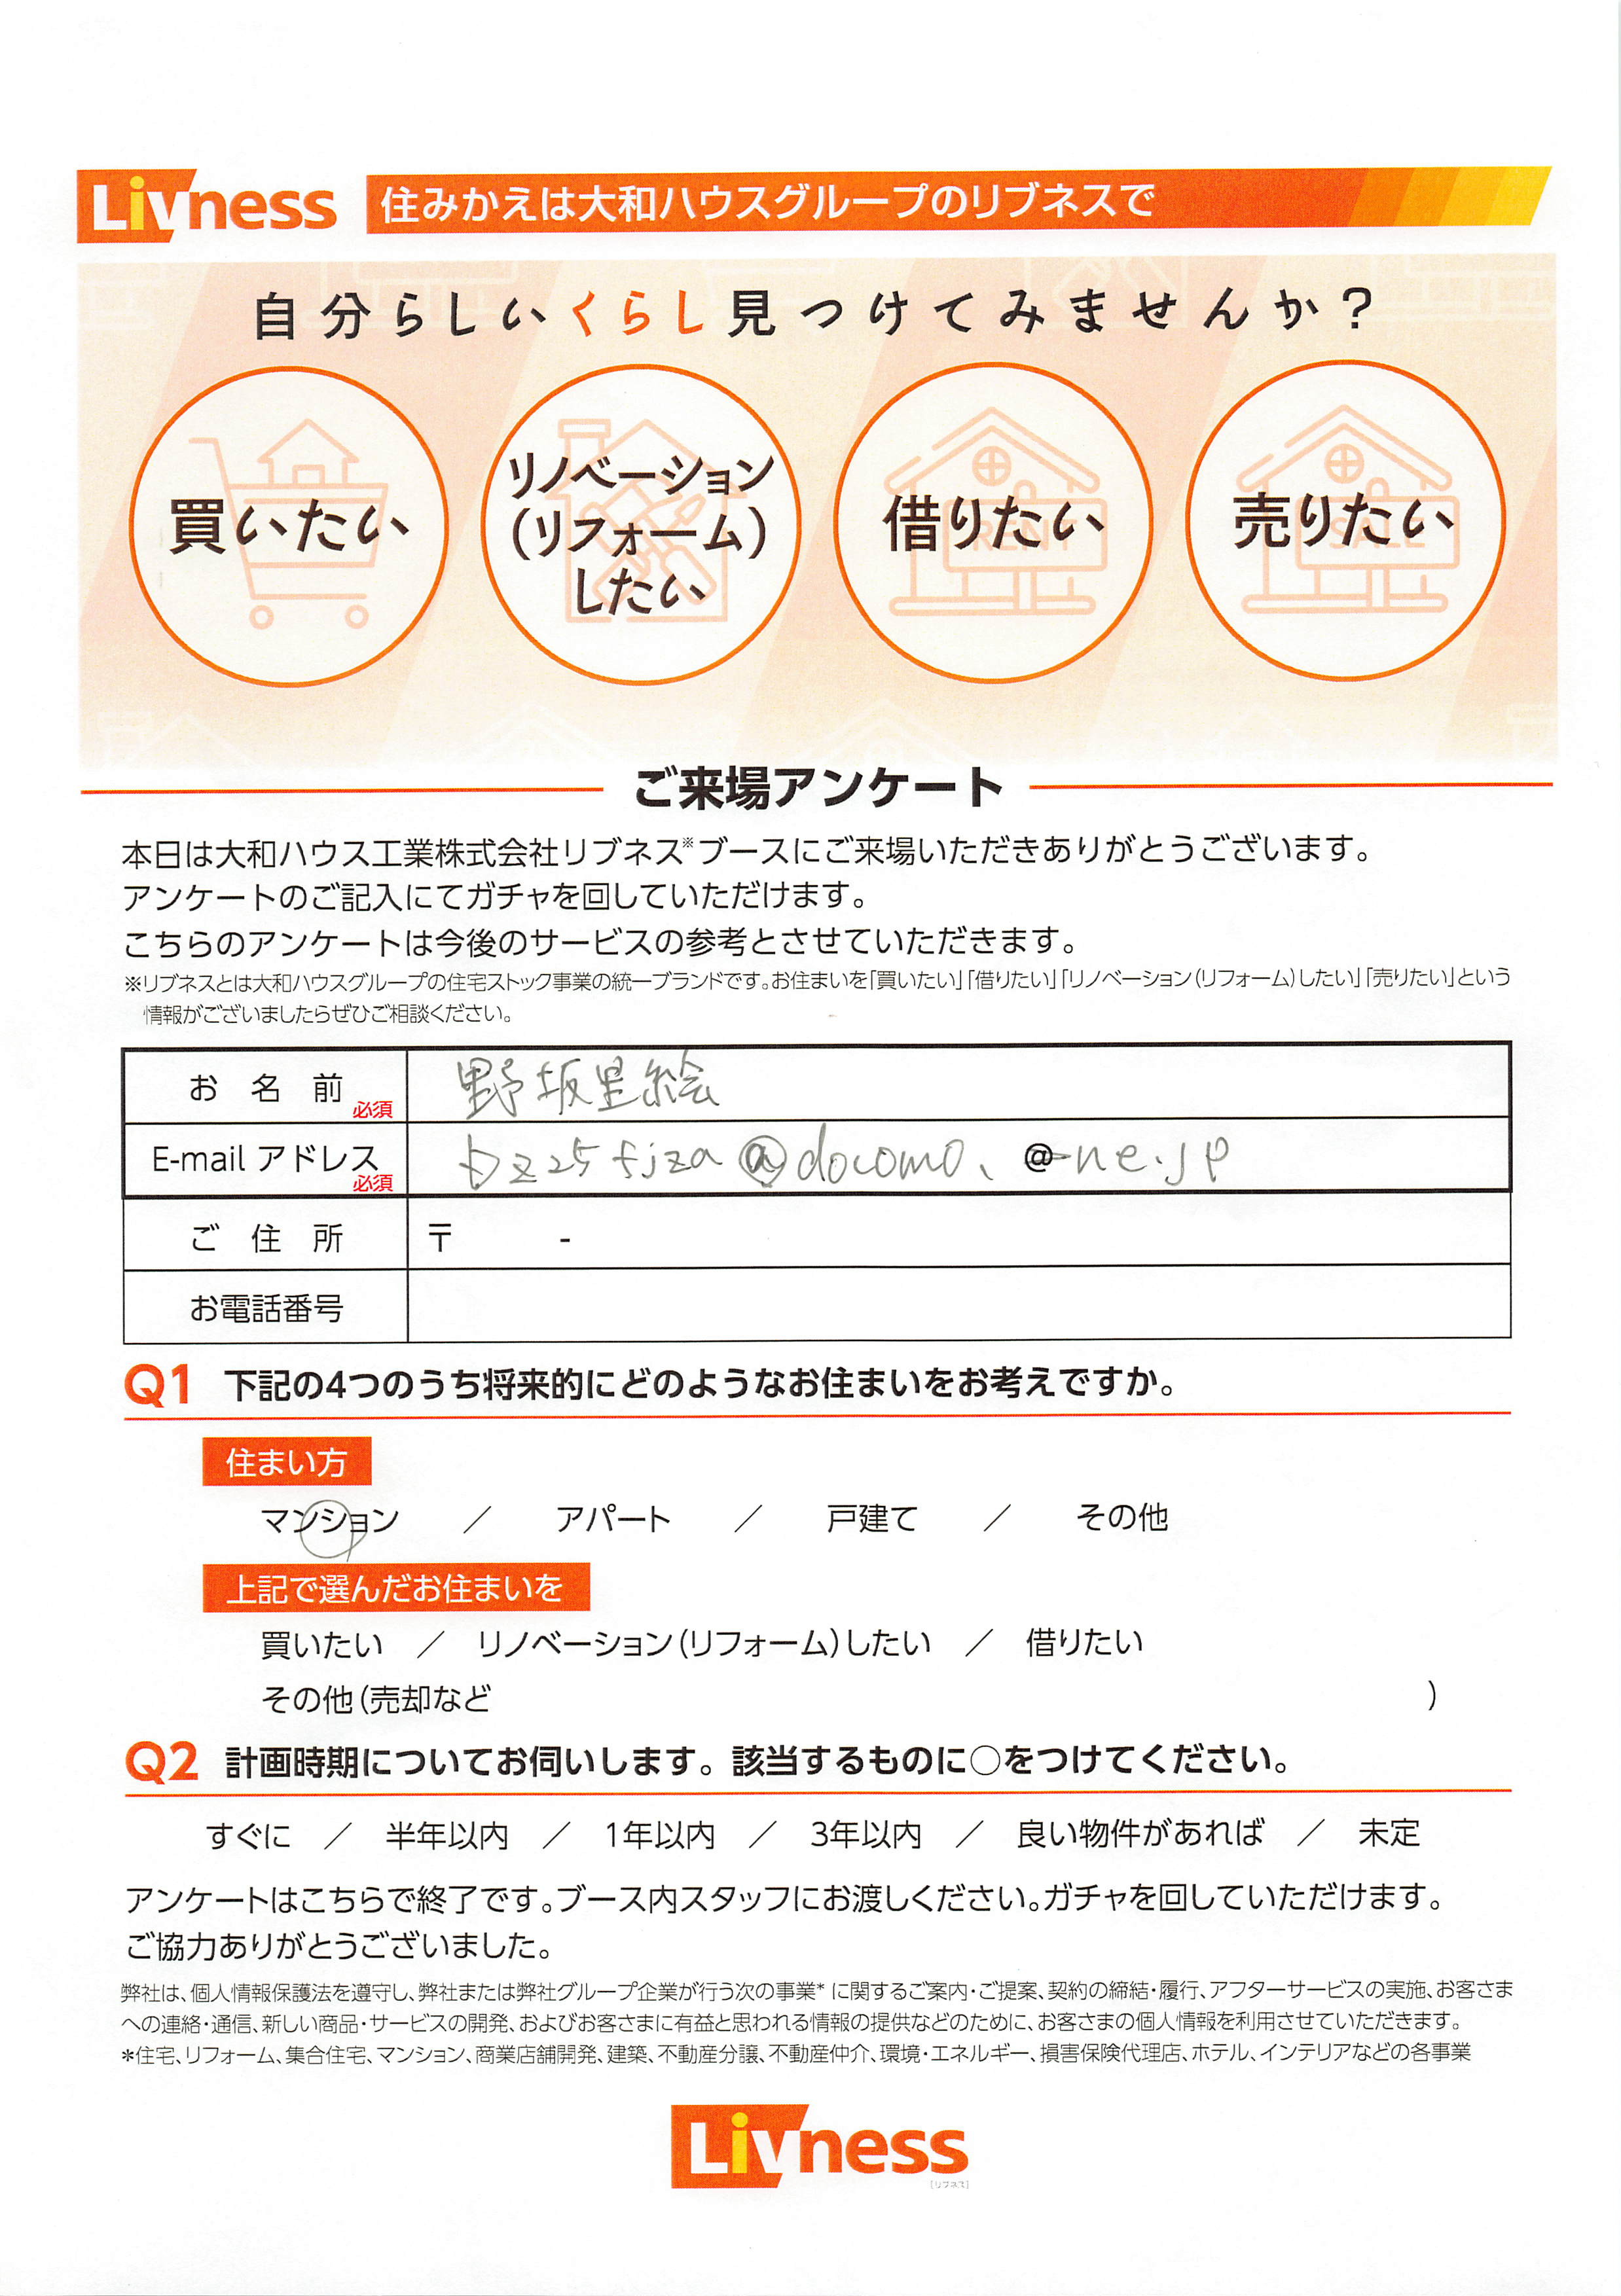 Livness 住みかえは大和ハウスグループのリブネスで
自分らしいくらし見つけてみませんか？
買いたい
リノベーション
(リフォーム)
したい
RENT
借りたい
SALE
売りたい
ご来場アンケート
本日は大和ハウス工業株式会社リブネス※ブースにご来場いただきありがとうございます。
アンケートのご記入にてガチャを回していただけます。
こちらのアンケートは今後のサービスの参考とさせていただきます。
※リブネスとは大和ハウスグループの住宅ストック事業の統一ブランドです。お住まいを「買いたい」「借りたい」「リノベーション(リフォーム)したい」「売りたい」という
情報がございましたらぜひご相談ください。
お名前 必須 野坂里絵
E-mail アドレス 必須 @docomo. @ ne.jp
ご住所 〒 -
お電話番号
Q1 下記の4つのうち将来的にどのようなお住まいをお考えですか。
住まい方
マンション ／ アパート ／ 戸建て ／ その他
上記で選んだお住まいを
買いたい ／ リノベーション(リフォーム)したい ／ 借りたい
その他(売却など )
Q2 計画時期についてお伺いします。該当するものに○をつけてください。
すぐに ／ 半年以内 ／ 1年以内 ／ 3年以内 ／ 良い物件があれば ／ 未定
アンケートはこちらで終了です。ブース内スタッフにお渡しください。ガチャを回していただけます。
ご協力ありがとうございました。
弊社は、個人情報保護法を遵守し、弊社または弊社グループ企業が行う次の事業* に関するご案内・ご提案、契約の締結・履行、アフターサービスの実施、お客さま
への連絡・通信、新しい商品・サービスの開発、およびお客さまに有益と思われる情報の提供などのために、お客さまの個人情報を利用させていただきます。
*住宅、リフォーム、集合住宅、マンション、商業店舗開発、建築、不動産分譲、不動産仲介、環境・エネルギー、損害保険代理店、ホテル、インテリアなどの各事業
Livness
[リブネス]